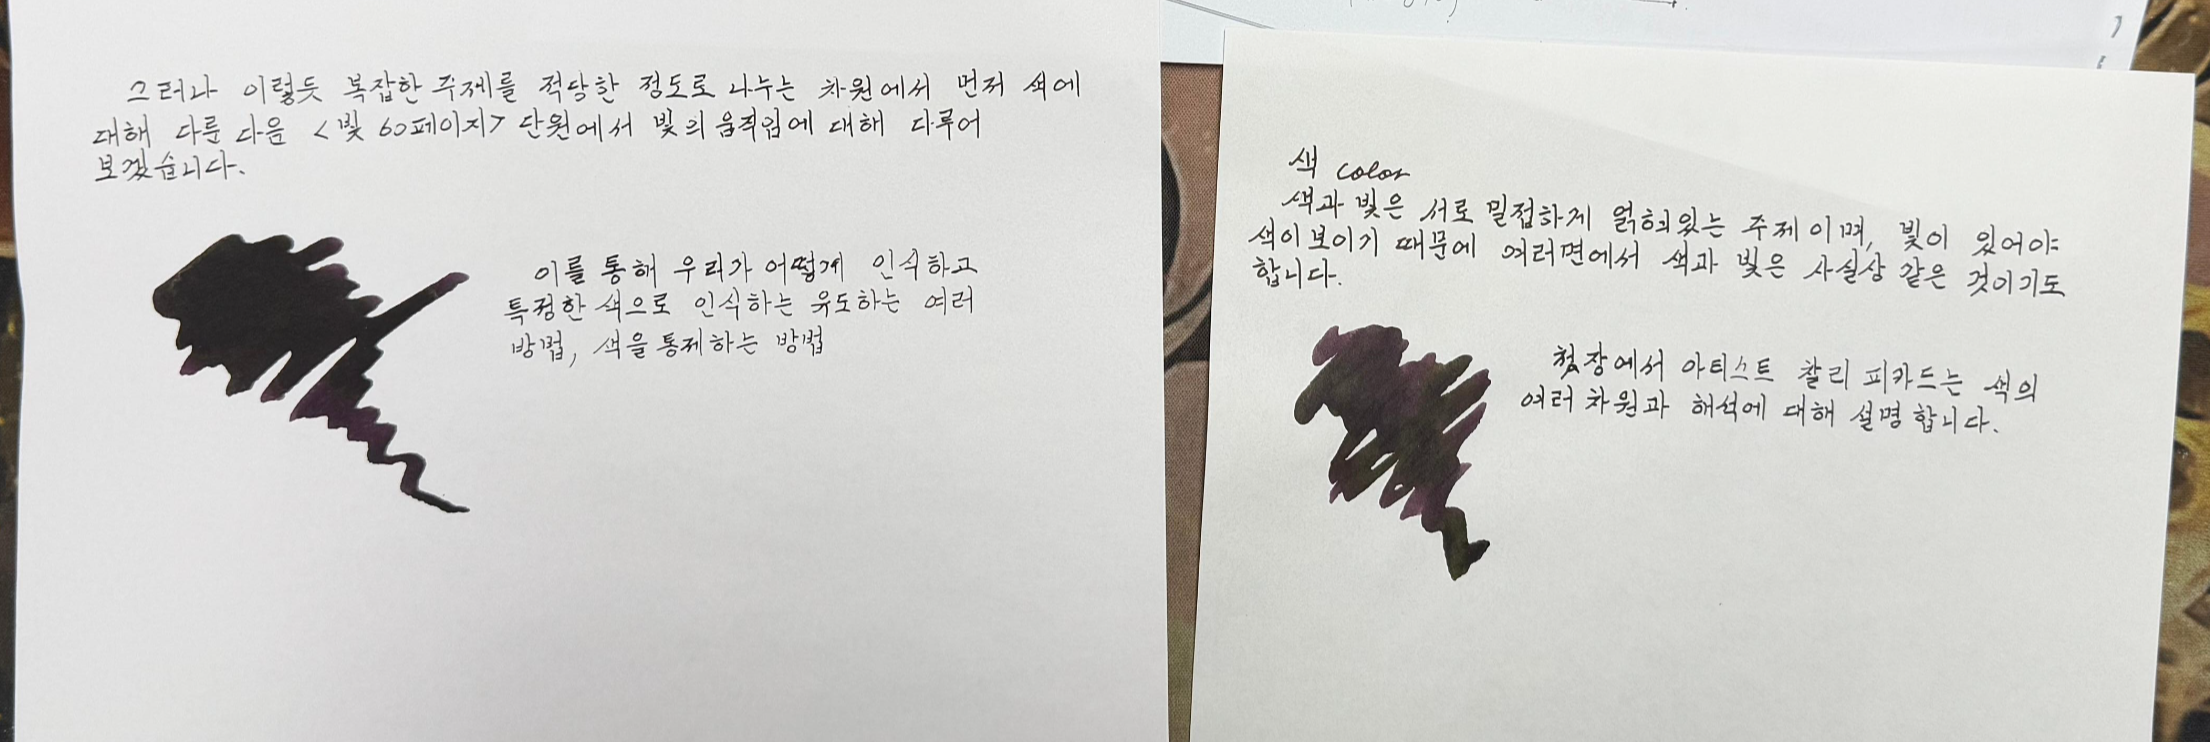 그러나 이렇듯 복잡한 주제를 적당한 정도로 나누는 차원에서 먼저 색에
대해 다룬 다음 <빛 60페이지> 단원에서 빛의 움직임에 대해 다루어
보겠습니다.
이를 통해 우리가 어떻게 인식하고
특정한 색으로 인식하는 유도하는 여러
방법, 색을 통제하는 방법
색 color
색과 빛은 서로 밀접하게 얽혀있는 주제이며, 빛이 있어야
색이 보이기 때문에 여러면에서 색과 빛은 사실상 같은 것이기도
합니다.
첫장에서 아티스트 찰리 피카드는 색의
여러 차원과 해석에 대해 설명합니다.